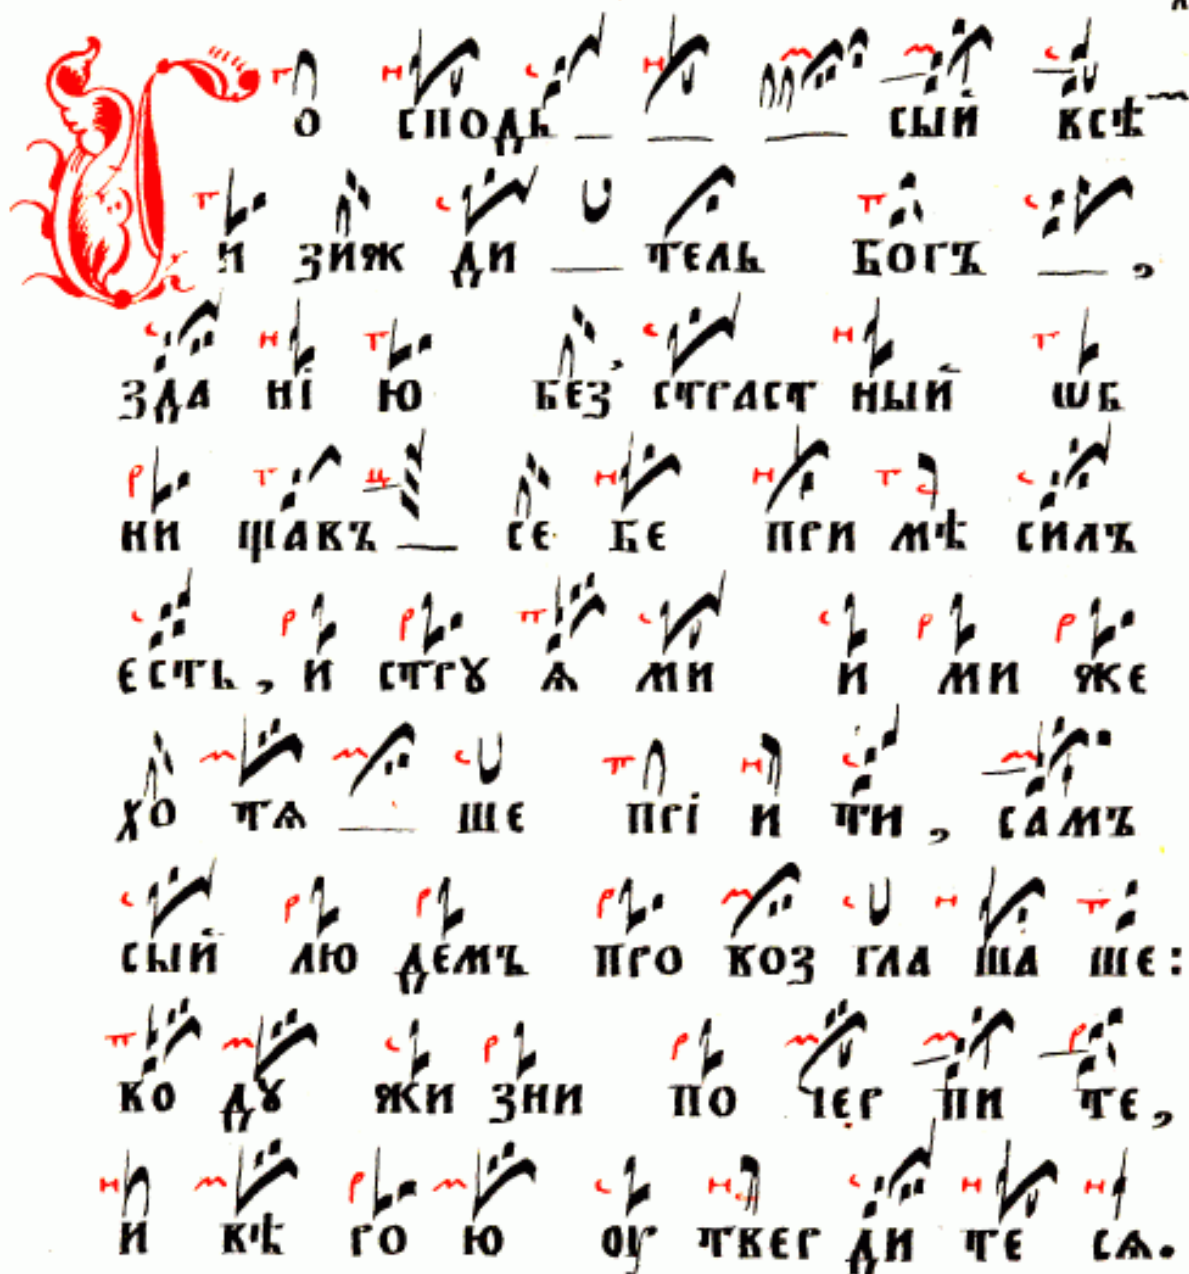 Го сподь _ _ _ сый всѣ^м
и зиж ди _ тель богъ _ ,
зда ні ю без страст ный ѡб
ни щавъ _ се бе при мѣ силъ
єсть , и стрꙋ ѧ ми и ми же
хо тѧ _ ше прі и ти , самъ
сый лю демъ про воз гла ша ше :
во дꙋ жи зни по чер пи те ,
и вѣ ро ю оу твер ди те сѧ .